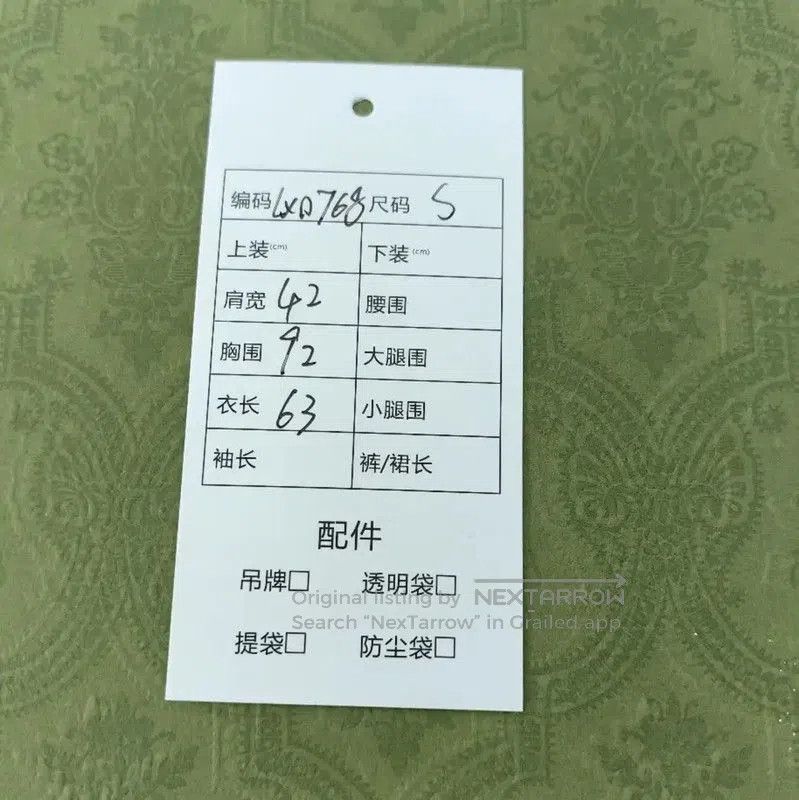 编码 LXD768 尺码 S
上装(cm) 下装(cm)
肩宽 42 腰围
胸围 92 大腿围
衣长 63 小腿围
袖长 裤/裙长
配件
吊牌□ 透明袋□
Original listing by NEXTARROW
Search “NexTarrow” in Grailed app
提袋□ 防尘袋□